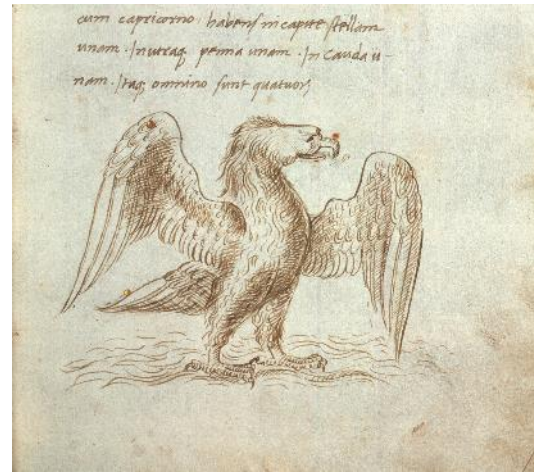 cum capricorno· habens in capite stellam
unam· In utraq; penna unam· In cauda u-
nam· Itaq; omnino sunt quatuor;